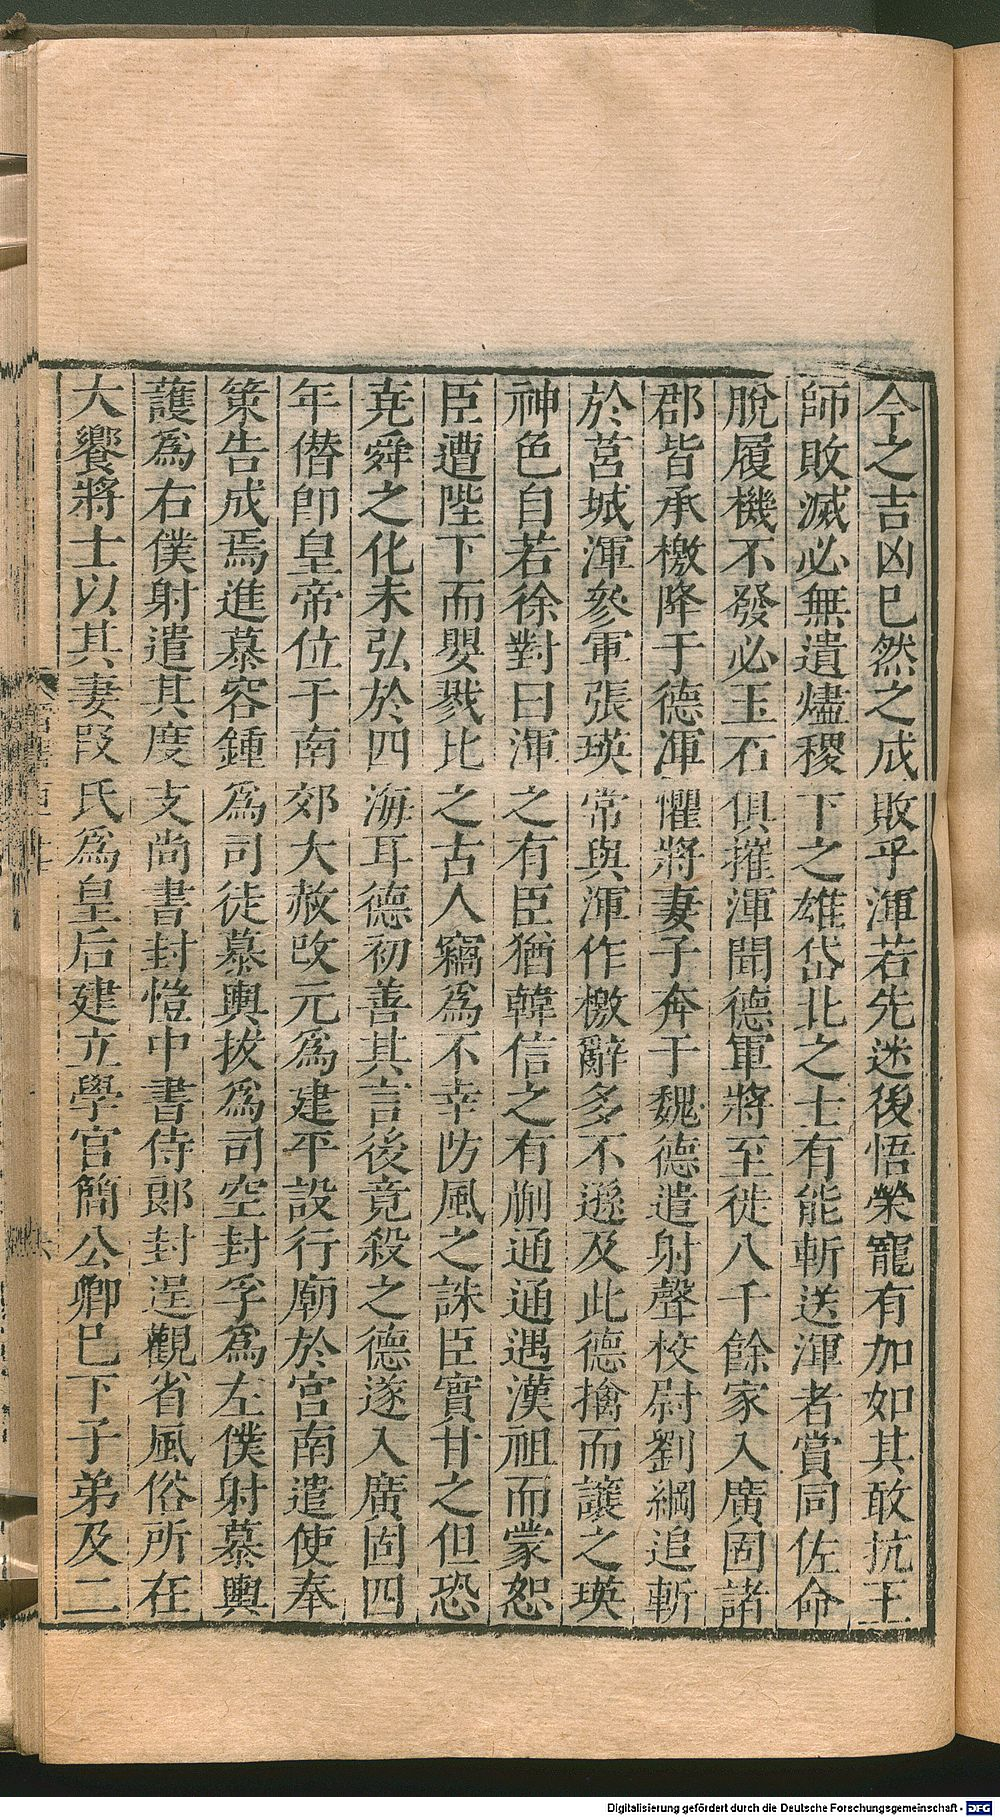 今之吉凶巳然之成敗乎渾若先迷後悟榮寵有加如其敢抗王
師敗滅必無遺燼稷下之雄岱北之士有能斬送渾者賞同佐命
脫履機不發必玉石俱摧渾聞德軍將至徙八千餘家入廣固諸
郡皆承檄降于德渾懼將妻子奔于魏德遣射聲校尉劉綱追斬
於莒城渾參軍張瑛常與渾作檄辭多不遜及此德擒而讓之瑛
神色自若徐對曰渾之有臣猶韓信之有蒯通通遇漢祖而蒙恕
臣遭陛下而嬰戮比之古人竊爲不幸防風之誅臣實甘之但恐
堯舜之化未弘於四海耳德初善其言後竟殺之德遂入廣固四
年僭即皇帝位于南郊大赦改元爲建平設行廟於宮南遣使奉
策告成焉進慕容鍾爲司徒慕輿拔爲司空封孚爲左僕射慕輿
護爲右僕射遣其度支尚書封愷中書侍郎封逞觀省風俗所在
大饗將士以其妻段氏爲皇后建立學官簡公卿巳下子弟及二
Digitalisierung gefördert durch die Deutsche Forschungsgemeinschaft - DFG